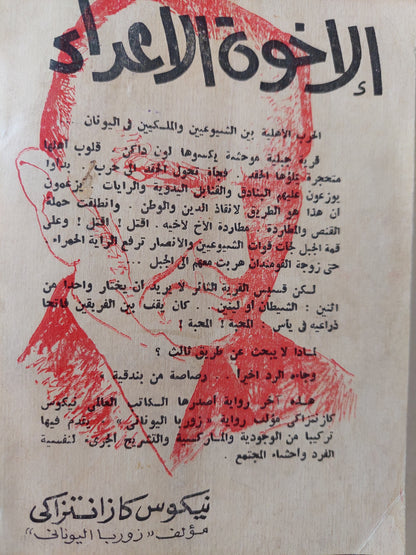 الإخوة الأعداء
الحرب الأهلية بين الشيوعيين والملكيين في اليونان
قرية جبلية موحشة يكسوها لون داكن . قلوب أهلها
متحجرة يملؤها الحقد . فجأة تحول الحقد الى حرب . بدأوا
يوزعون عليهم البنادق والقنابل اليدوية والرايات . يزعمون
ان هذا هو الطريق لانقاذ الدين والوطن . وانطلقت حملة
القنص والمطاردة . مطاردة الأخ لأخيه . اقتل ! اقتل ! وعلى
قمة الجبل خات قوات الشيوعيين والأنصار ترفع الراية الحمراء .
حتى زوجة القومندان هربت معهم الى الجبل ...
لكن قسيس القرية الثائر لا يريد ان يختار واحدا من
اثنين : الشيطان او لينين . . كان يقف بين الفريقين فاتحا
ذراعيه في يأس : المحبة ! المحبة !
لماذا لا يبحث عن طريق ثالث ؟
وجاءه الرد اخيرا .. رصاصة من بندقية .
هذه آخر رواية أصدرها الكاتب العالمي نيكوس
كازنتزاكي مؤلف رواية « زوربا اليوناني » .. يقدم فيها
تركيبا من الوجودية والماركسية والتشريح الجرىء لنفسية
الفرد واحشاء المجتمع .
نيكوس كازانتزاكي
مؤلف "زوربا اليوناني"